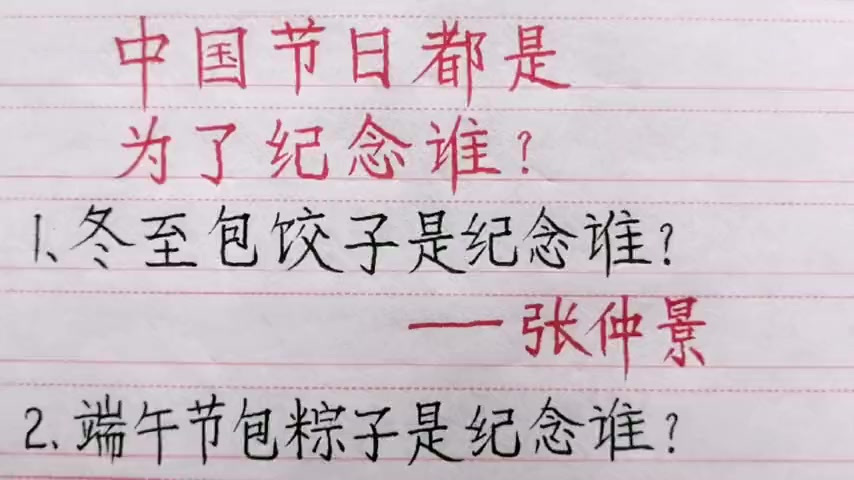 中国节日都是
为了纪念谁?
1、冬至包饺子是纪念谁?
——张仲景
2.端午节包粽子是纪念谁?